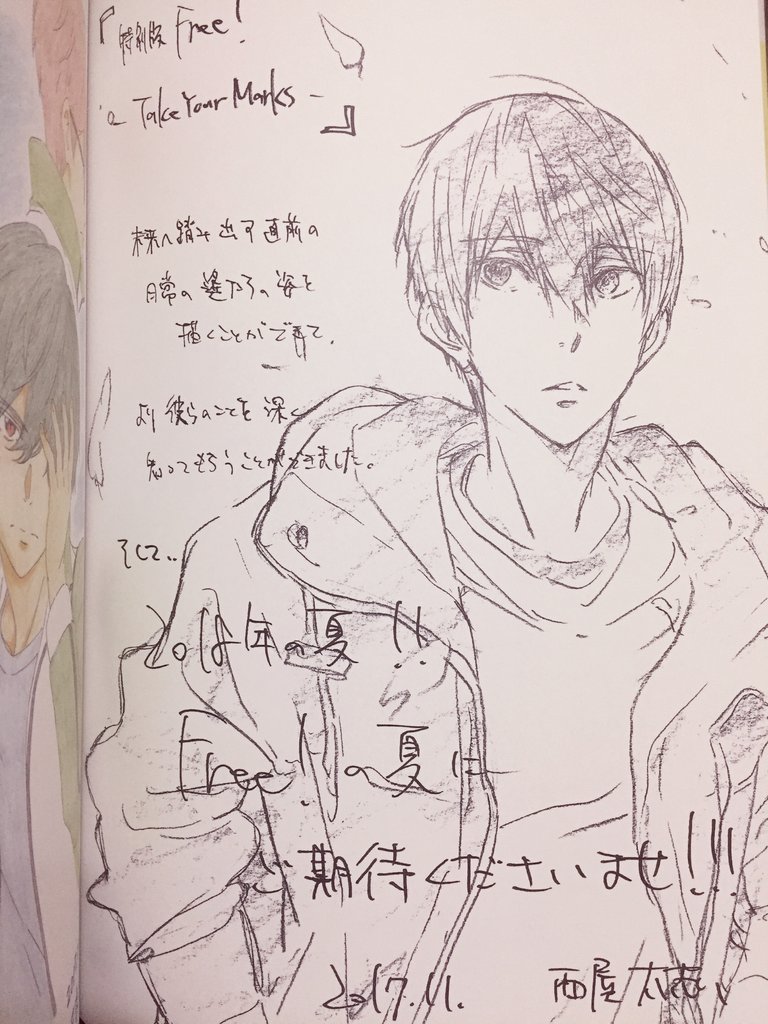 『特別版 Free!
- Take Your Marks -
』
未来へ踏み出す直前の
日常の遙たちの姿を
描くことができて、
より彼らのことを深く
知ってもらうことができました。
そして..
2018年の夏!!
Free!の夏に
ご期待くださいませ!!!
2017.11. 西屋太志